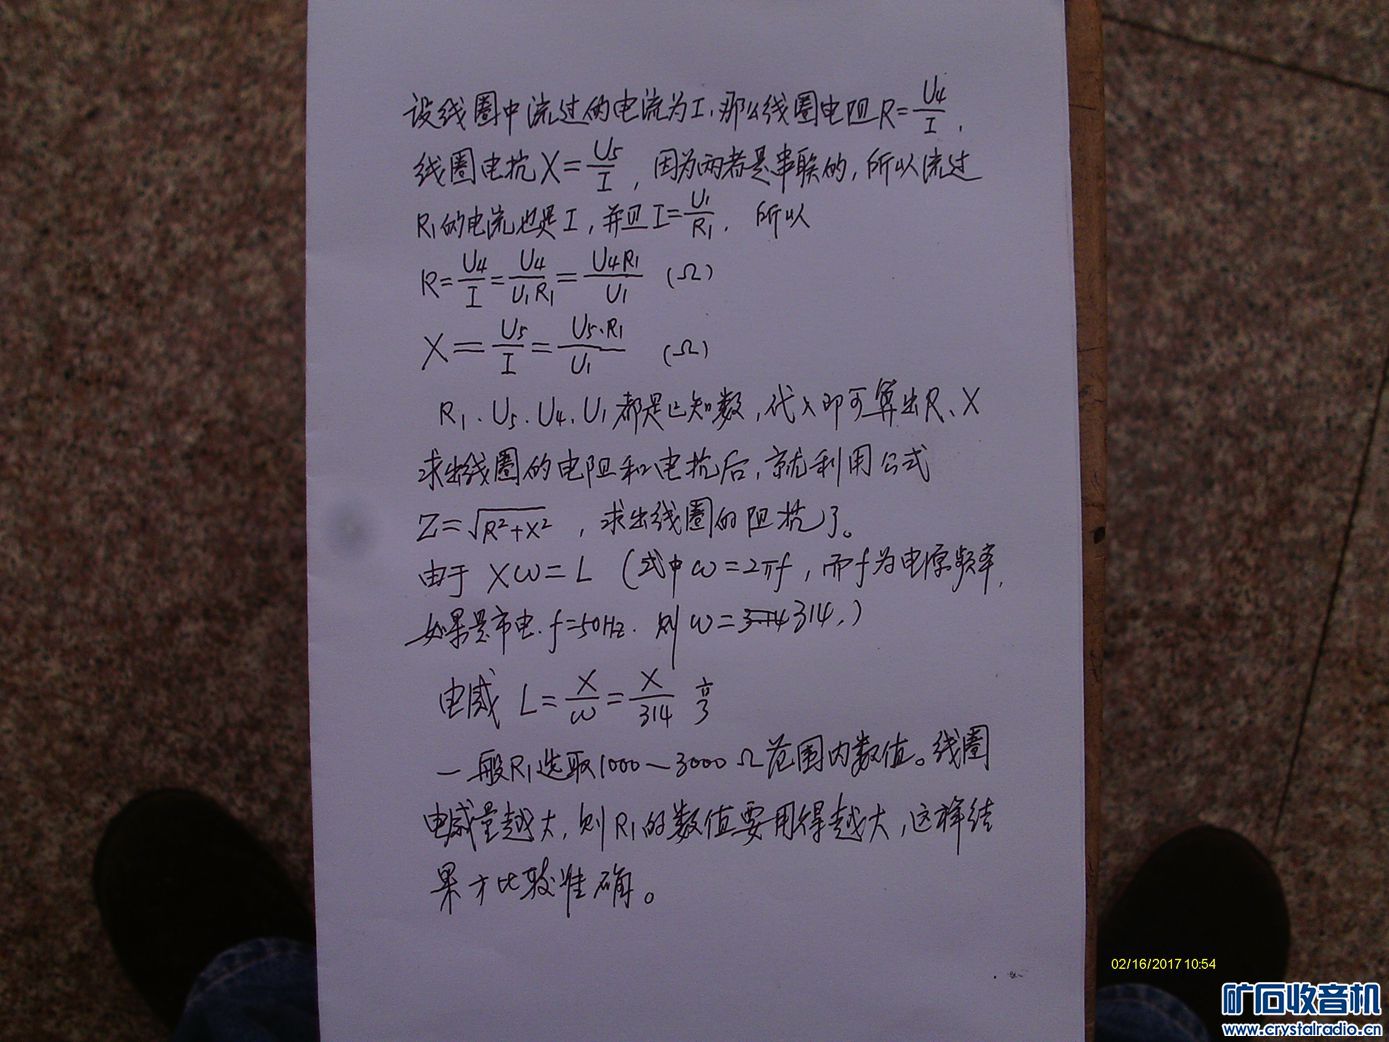 设线圈中流过的电流为I,那么线圈电阻R=U4/I,
线圈电抗X=U5/I,因为两者是串联的,所以流过
R1的电流也是I,并且I=U1/R1.所以
R=U4/I=U4/U1R1=U4R1/U1 (Ω)
X=U5/I=U5·R1/U1 (Ω)
R1、U5、U4、U1都是已知数,代入即可算出R、X
求出线圈的电阻和电抗后,就利用公式
Z=√R²+X²,求出线圈的阻抗了。
由于 Xω=L (式中ω=2πf,而f为电源频率,
如果是市电.f=50Hz.则ω=3.14 314.)
电感 L=X/ω=X/314 亨
一般R1选取1000~3000Ω范围内数值。线圈
电感量越大,则R1的数值要用得越大,这样结
果才比较准确。
02/16/2017 10:54
矿石收音机
www.crystalradio.cn